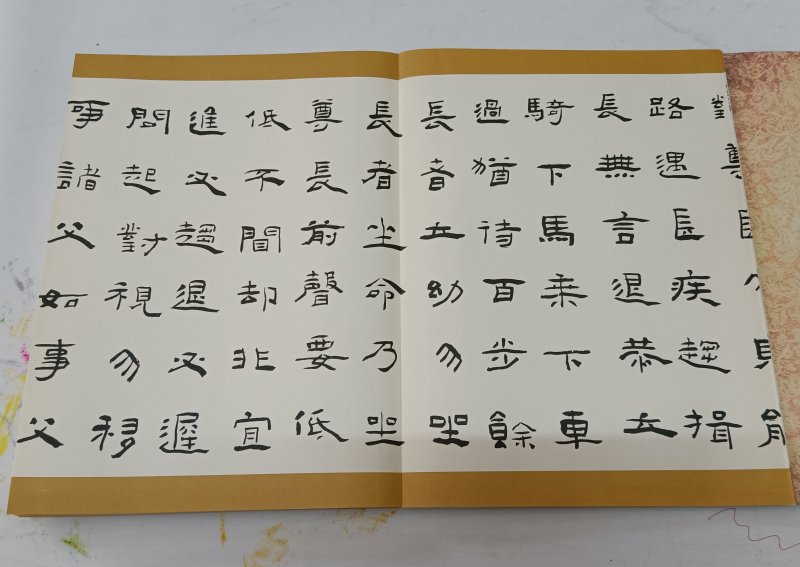 對尊長勿見能
路遇長疾趨揖
長無言退恭立
騎下馬乘下車
過猶待百步餘
長者立幼勿坐
長者坐命乃坐
尊長前聲要低
低不聞却非宜
進必趨退必遲
問起對視勿移
事諸父如事父